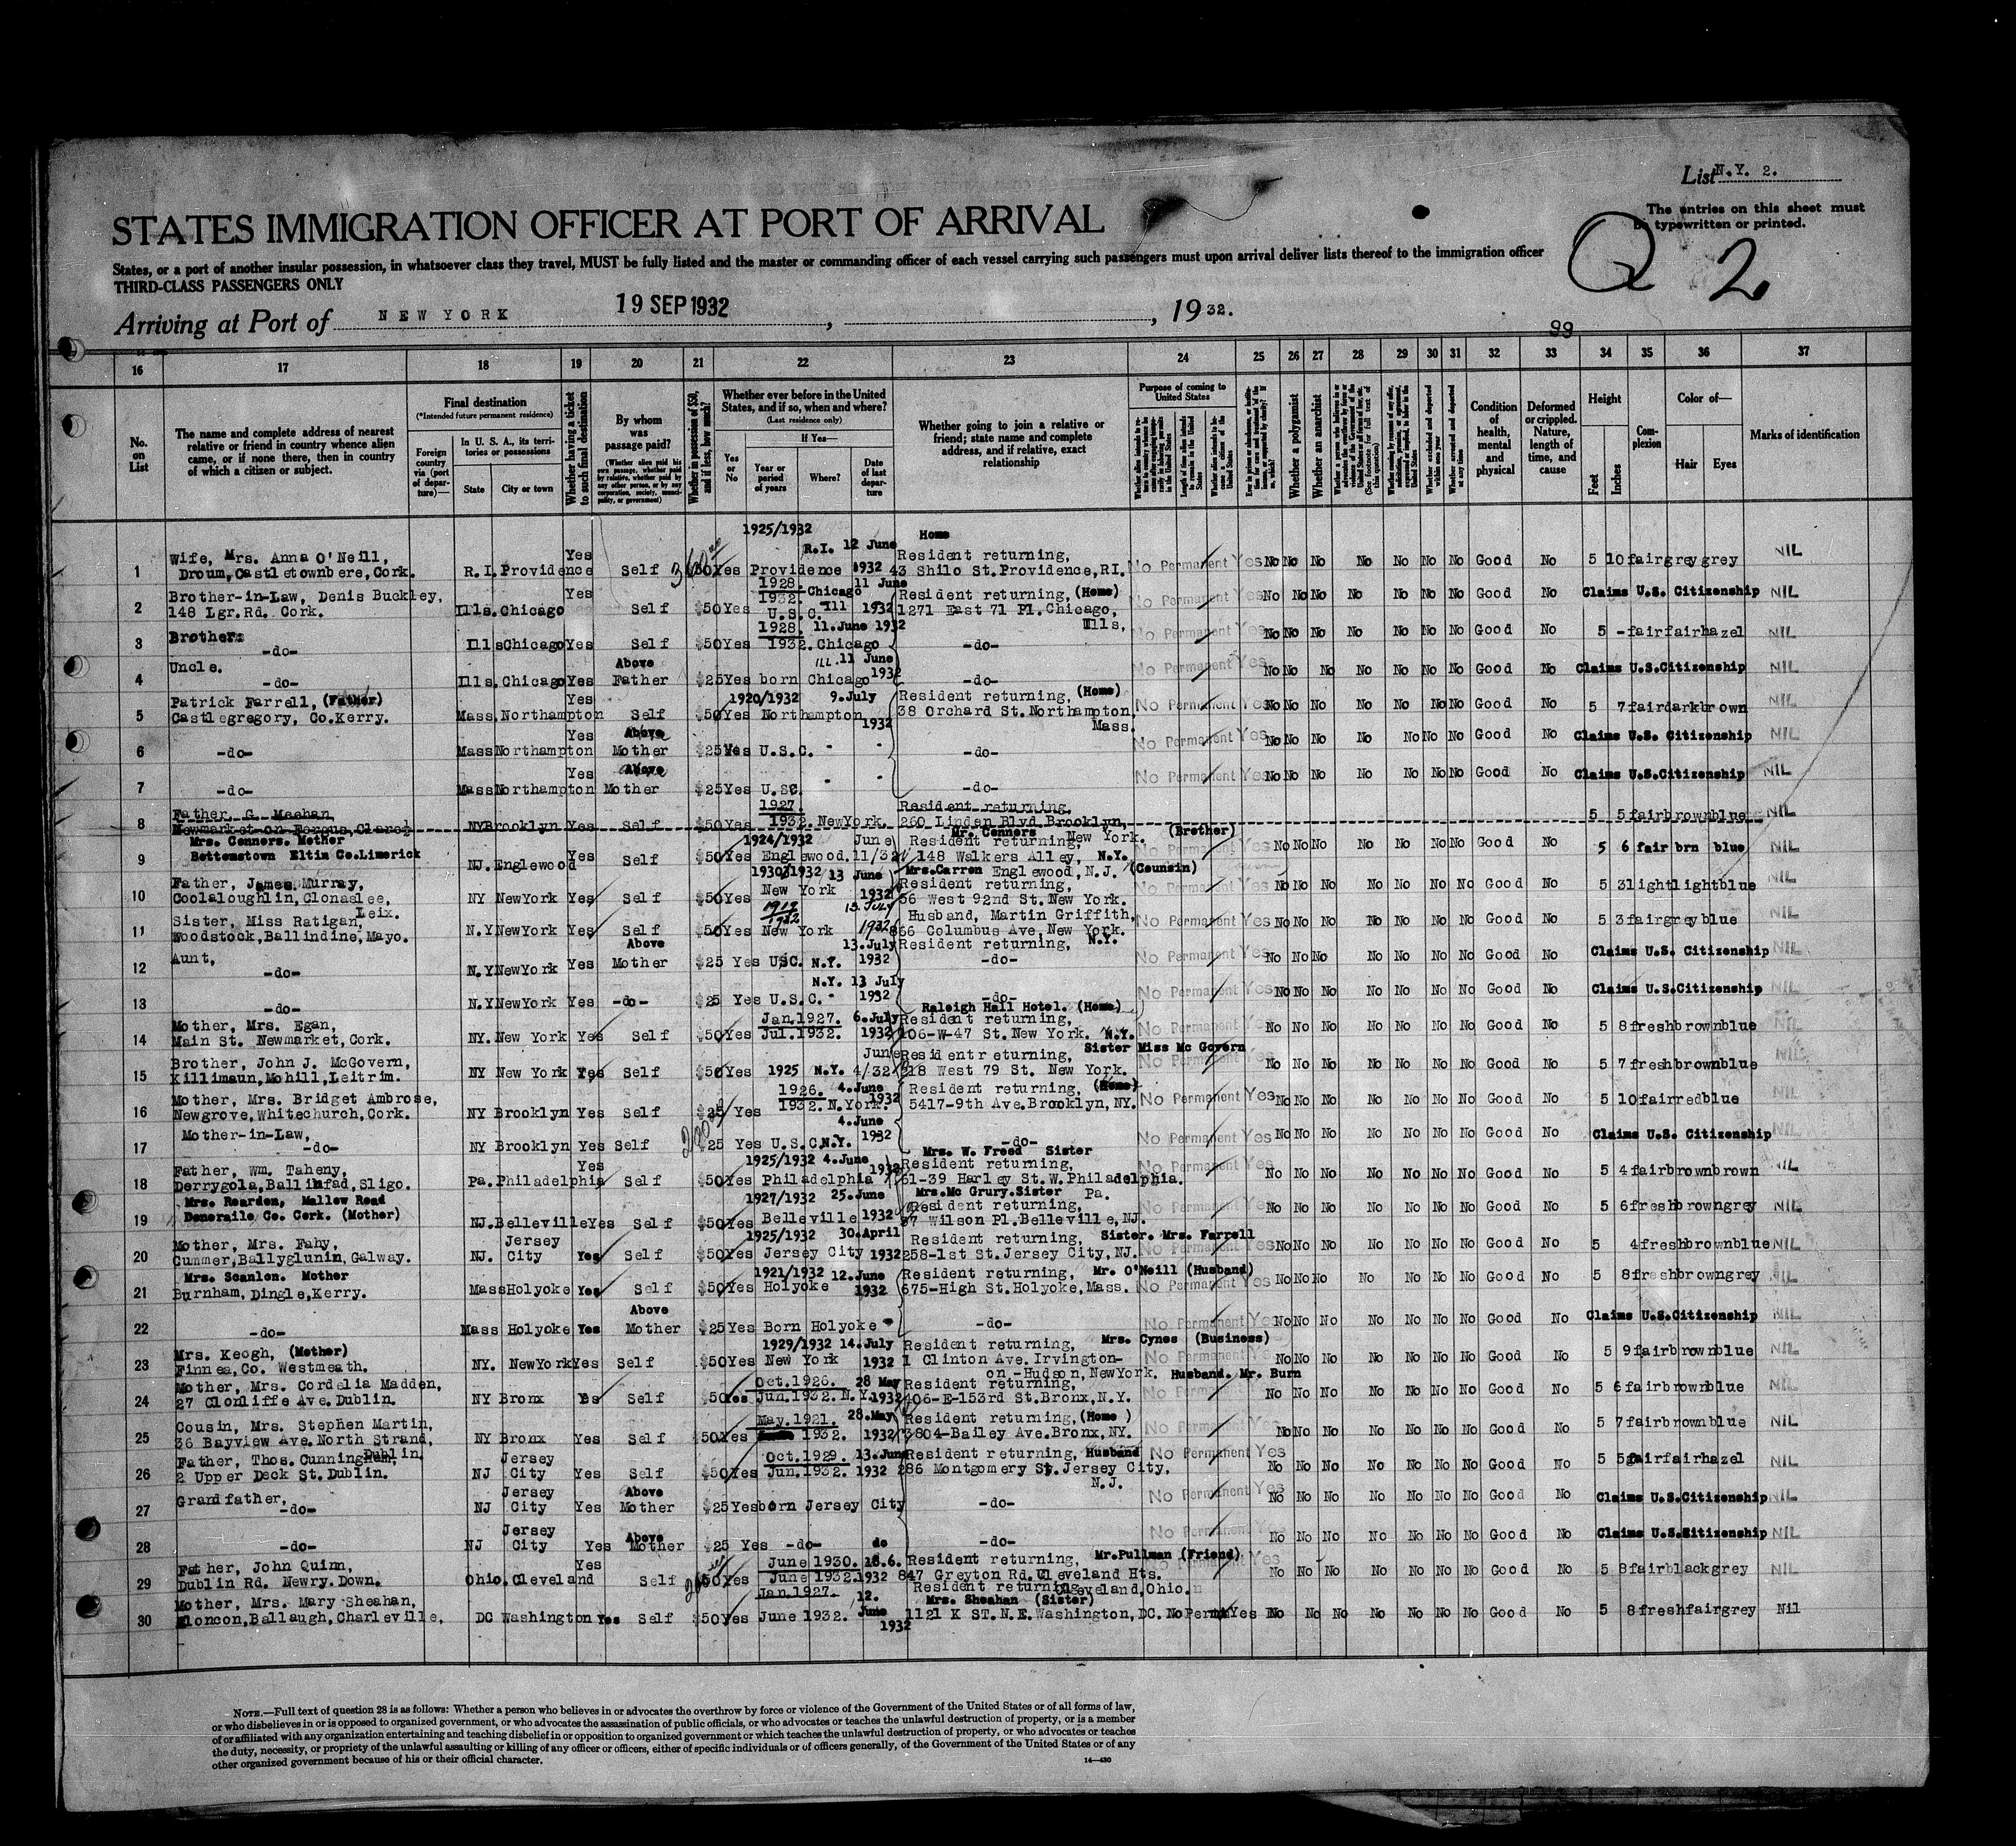 List N.Y. 2.
The entries on this sheet must
be typewritten or printed.
Q 2
STATES IMMIGRATION OFFICER AT PORT OF ARRIVAL
States, or a port of another insular possession, in whatsoever class they travel, MUST be fully listed and the master or commanding officer of each vessel carrying such passengers must upon arrival deliver lists thereof to the immigration officer
THIRD-CLASS PASSENGERS ONLY
Arriving at Port of NEW YORK 19 SEP 1932, , 1932.
99
16 17 18 19 20 21 22 23 24 25 26 27 28 29 30 31 32 33 34 35 36 37
No. on List
The name and complete address of nearest relative or friend in country whence alien came, or if none there, then in country of which a citizen or subject.
Final destination
(*Intended future permanent residence)
Foreign country via (port of departure)—
In U. S. A., its territories or possessions
State City or town
Whether having a ticket to such final destination
By whom was passage paid?
(Whether alien paid his own passage, whether paid by relative, whether paid by any other person, or by any corporation, society, municipality, or government)
Whether in possession of $50, and if less, how much?
Whether ever before in the United States, and if so, when and where?
(Last residence only)
If Yes—
Yes or No
Year or period of years
Where?
Date of last departure
Whether going to join a relative or friend; state name and complete address, and if relative, exact relationship
Purpose of coming to United States
Whether a polygamist
Whether an anarchist
Condition of health, mental and physical
Deformed or crippled. Nature, length of time, and cause
Height
Feet Inches
Complexion
Color of—
Hair Eyes
Marks of identification
1925/1932 Home
Wife, Mrs. Anna O'Neill, Yes R.I. 12 June Resident returning,
1 Droum, Castletownbere, Cork. R.I. Providence Self Yes Providence 1932 43 Shilo St. Providence, RI. No Permanent Yes No No No No No No No Good No 5 10 fair grey grey NIL
Brother-in-Law, Denis Buckley, Yes 1928. Chicago 11 June Resident returning, (Home)
2 148 Lgr. Rd. Cork. Ills. Chicago Self $50 Yes 1932 U.S.C. Ill 1932 1271 East 71 Pl. Chicago, Ills, No Permanent Yes No No No No No No No Good No Claims U.S. Citizenship NIL
Brother: 1928. 11. June 1932
3 -do- Ills Chicago Yes Self $50 Yes 1932. Chicago -do- No Permanent Yes No No No No No No No Good No 5 - fair fair hazel NIL
Uncle. Above Ill. 11 June
4 -do- Ills. Chicago Yes Father $25 Yes born Chicago 1932 -do- No Permanent Yes No No No No No No No Good No Claims U.S. Citizenship NIL
Patrick Farrell, (Father) Yes 1920/1932 9. July Resident returning, (Home)
5 Castlegregory, Co. Kerry. Mass. Northampton Self $50 Yes Northampton 1932 38 Orchard St. Northampton, Mass. No Permanent Yes No No No No No No No Good No 5 7 fair dark brown NIL
Yes Above
6 -do- Mass Northampton Mother $25 Yes U.S.C. " " -do- No Permanent Yes No No No No No No No Good No Claims U.S. Citizenship NIL
Yes Above
7 -do- Mass Northampton Mother $25 Yes U.SC. " " -do- No Permanent Yes No No No No No No No Good No Claims U.S. Citizenship NIL
Father, G. Meehan, 1927. Resident returning,
8 Newmarket on Fergus, Clare. NY Brooklyn Yes Self $50 Yes 1932. New York. 260 Linden Blvd Brooklyn, New York. 5 5 fair brown blue NIL
Mrs. Connors. Mother 1924/1932 June Mr. Connors (Brother)
9 Bottomstown Eltin Co. Limerick NJ. Englewood Yes Self $50 Yes Englewood. 11/32 148 Walkers Alley, N.Y. Englewood, N.J. No Permanent Yes No No No No No No No Good No 5 6 fair brn blue NIL
Father, James Murray, 1930/1932 13 June Mrs. Carron (Counsin) Resident returning,
10 Coolaloughlin, Clonaslee, Leix. NY New York Yes Self $50 Yes New York 1932 56 West 92nd St. New York. No Permanent Yes No No No No No No No Good No 5 3 light light blue NIL
Sister, Miss Ratigan, 1912 13. July Husband, Martin Griffith,
11 Woodstock, Ballindine, Mayo. N.Y New York Yes Self $50 Yes 1932 New York 1932 866 Columbus Ave, New York. N.Y. No Permanent Yes No No No No No No No Good No 5 3 fair grey blue NIL
Aunt, Above 13. July Resident returning,
12 -do- N.Y New York Yes Mother $25 Yes USC. N.Y. 1932 -do- No Permanent Yes No No No No No No No Good No Claims U.S. Citizenship NIL
N.Y. 13 July
13 -do- N.Y New York Yes -do- $25 Yes U.S.C. " 1932 -do- No Permanent Yes No No No No No No No Good No Claims U.S. Citizenship NIL
Mother, Mrs. Egan, Jan. 1927. 6. July Raleigh Hall Hotel. (Home) Resident returning,
14 Main St. Newmarket, Cork. NY. New York Yes Self $50 Yes Jul. 1932. 1932 106-W-47 St. New York. N.Y. No Permanent Yes No No No No No No No Good No 5 8 fresh brown blue NIL
Brother, John J. McGovern, June Resident returning, Sister Miss Mc Govern
15 Killimaun, Mohill, Leitrim. NY New York Yes Self $50 Yes 1925 N.Y. 4/32 218 West 79 St. New York. No Permanent Yes No No No No No No No Good No 5 7 fresh brown blue NIL
Mother, Mrs. Bridget Ambrose, 1926. 4. June Resident returning, (Home)
16 Newgrove, Whitechurch, Cork. NY Brooklyn Yes Self $25 Yes 1932. N. York. 1932 5417-9th Ave. Brooklyn, NY. No Permanent Yes No No No No No No No Good No 5 10 fair red blue NIL
Mother-in-Law, 4. June
17 -do- NY Brooklyn Yes Self $25 Yes U.S.C. N.Y. 1932 -do- No Permanent Yes No No No No No No No Good No Claims U.S. Citizenship NIL
Father, Wm. Taheny, Yes 1925/1932 4. June Mrs. W. Freed Sister Resident returning,
18 Derrygola, Ballinfad, Sligo. Pa. Philadelphia Self $50 Yes Philadelphia 1932 61-39 Harley St. W. Philadelphia. Pa. No Permanent Yes No No No No No No No Good No 5 4 fair brown brown NIL
Mrs. Rearden, Mallow Road 1927/1932 25. June Mrs. Mc Grury. Sister Resident returning,
19 Doneraile Co. Cork. (Mother) NJ. Belleville Yes Self $50 Yes Belleville 1932 37 Wilson Pl. Belleville, NJ. No Permanent Yes No No No No No No No Good No 5 6 fresh brown grey NIL
Mother, Mrs. Fahy, Jersey 1925/1932 30. April Resident returning, Sister. Mrs. Farrell
20 Cummer, Ballyglunin, Galway. NJ. City Yes Self $50 Yes Jersey City 1932 258-1st St. Jersey City, NJ. No Permanent Yes No No No No No No No Good No 5 4 fresh brown blue NIL
Mrs. Scanlon. Mother 1921/1932 12. June Resident returning, Mr. O'Neill (Husband)
21 Burnham, Dingle, Kerry. Mass Holyoke Yes Self $50 Yes Holyoke 1932 675-High St. Holyoke, Mass. No Permanent Yes No No No No No No No Good No 5 8 fresh brown grey NIL
Above
22 -do- Mass Holyoke Yes Mother $25 Yes Born Holyoke " -do- No Permanent Yes No No No No No No No Good No Claims U.S. Citizenship NIL
Mrs. Keogh, (Mother) 1929/1932 14. July Resident returning, Mrs. Cynes (Business)
23 Finnea, Co. Westmeath. NY. New York Yes Self $50 Yes New York 1932 1 Clinton Ave. Irvington-on-Hudson, New York. No Permanent Yes No No No No No No No Good No 5 9 fair brown blue NIL
Mother, Mrs. Cordelia Madden, Oct. 1926. 28 May Resident returning, Husband. Mr. Burn
24 27 Clonliffe Ave. Dublin. NY Bronx Yes Self $50 Yes Jun. 1932. N.Y. 1932 406-E-153rd St. Bronx, N.Y. No Permanent Yes No No No No No No No Good No 5 6 fair brown blue NIL
Cousin, Mrs. Stephen Martin, May. 1921. 28. May Resident returning, (Home)
25 36 Bayview Ave. North Strand, Dublin. NY Bronx Yes Self $50 Yes 1932. 1932 3804-Bailey Ave. Bronx, NY. No Permanent Yes No No No No No No No Good No 5 7 fair brown blue NIL
Father, Thos. Cunningham, Jersey Oct. 1929. 13. June Resident returning, Husband
26 2 Upper Dock St. Dublin. NJ City Yes Self $50 Yes Jun. 1932. 1932 286 Montgomery St. Jersey City, N.J. No Permanent Yes No No No No No No No Good No 5 5 fair fair hazel NIL
Grandfather, Jersey Above
27 -do- NJ City Yes Mother $25 Yes born Jersey City -do- No Permanent Yes No No No No No No No Good No Claims U.S. Citizenship NIL
Jersey Above
28 -do- NJ City Yes Mother $25 Yes -do- do -do- No Permanent Yes No No No No No No No Good No Claims U.S. Citizenship NIL
Father, John Quinn, Yes June 1930. 18.6. Resident returning, Mr. Pullman (Friend)
29 Dublin Rd. Newry. Down. Ohio. Cleveland Self Yes June 1932. 1932 847 Greyton Rd. Cleveland Hts. Cleveland, Ohio. Yes No No No No No No No Good No 5 8 fair black grey NIL
Mother, Mrs. Mary Sheahan, Jan. 1927. 12. Resident returning, Mrs. Sheahan (Sister)
30 Cloncon, Ballaugh, Charleville, DC Washington Yes Self $50 Yes June 1932. June 1932 1121 K ST. N.E. Washington, DC. No Perm Yes No No No No No No No Good No 5 8 fresh fair grey Nil
NOTE.—Full text of question 28 is as follows: Whether a person who believes in or advocates the overthrow by force or violence of the Government of the United States or of all forms of law,
or who disbelieves in or is opposed to organized government, or who advocates the assassination of public officials, or who advocates or teaches the unlawful destruction of property, or is a member
of or affiliated with any organization entertaining and teaching disbelief in or opposition to organized government or which teaches the unlawful destruction of property, or who advocates or teaches
the duty, necessity, or propriety of the unlawful assaulting or killing of any officer or officers, either of specific individuals or of officers generally, of the Government of the United States or of any
other organized government because of his or their official character.
14—430